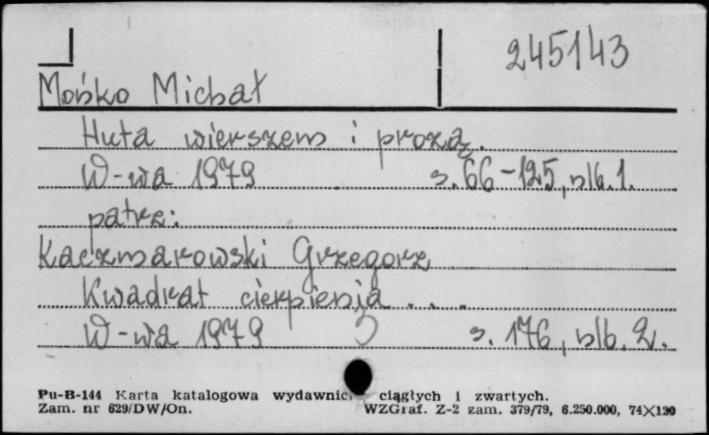 245143
Mońko Michał
Huta wierszem i prozą.
W-wa 1979 s. 66-125, nlb. 1.
patrz:
Kaczmarowski Grzegorz
Kwadrat cierpienia . . .
W-wa 1979 s. 176, nlb. 2.
Pu-B-144 Karta katalogowa wydawnic. ciągłych i zwartych.
Zam. nr 629/DW/On. WZGraf. Z-2 zam. 379/79, 6.250.000, 74×120